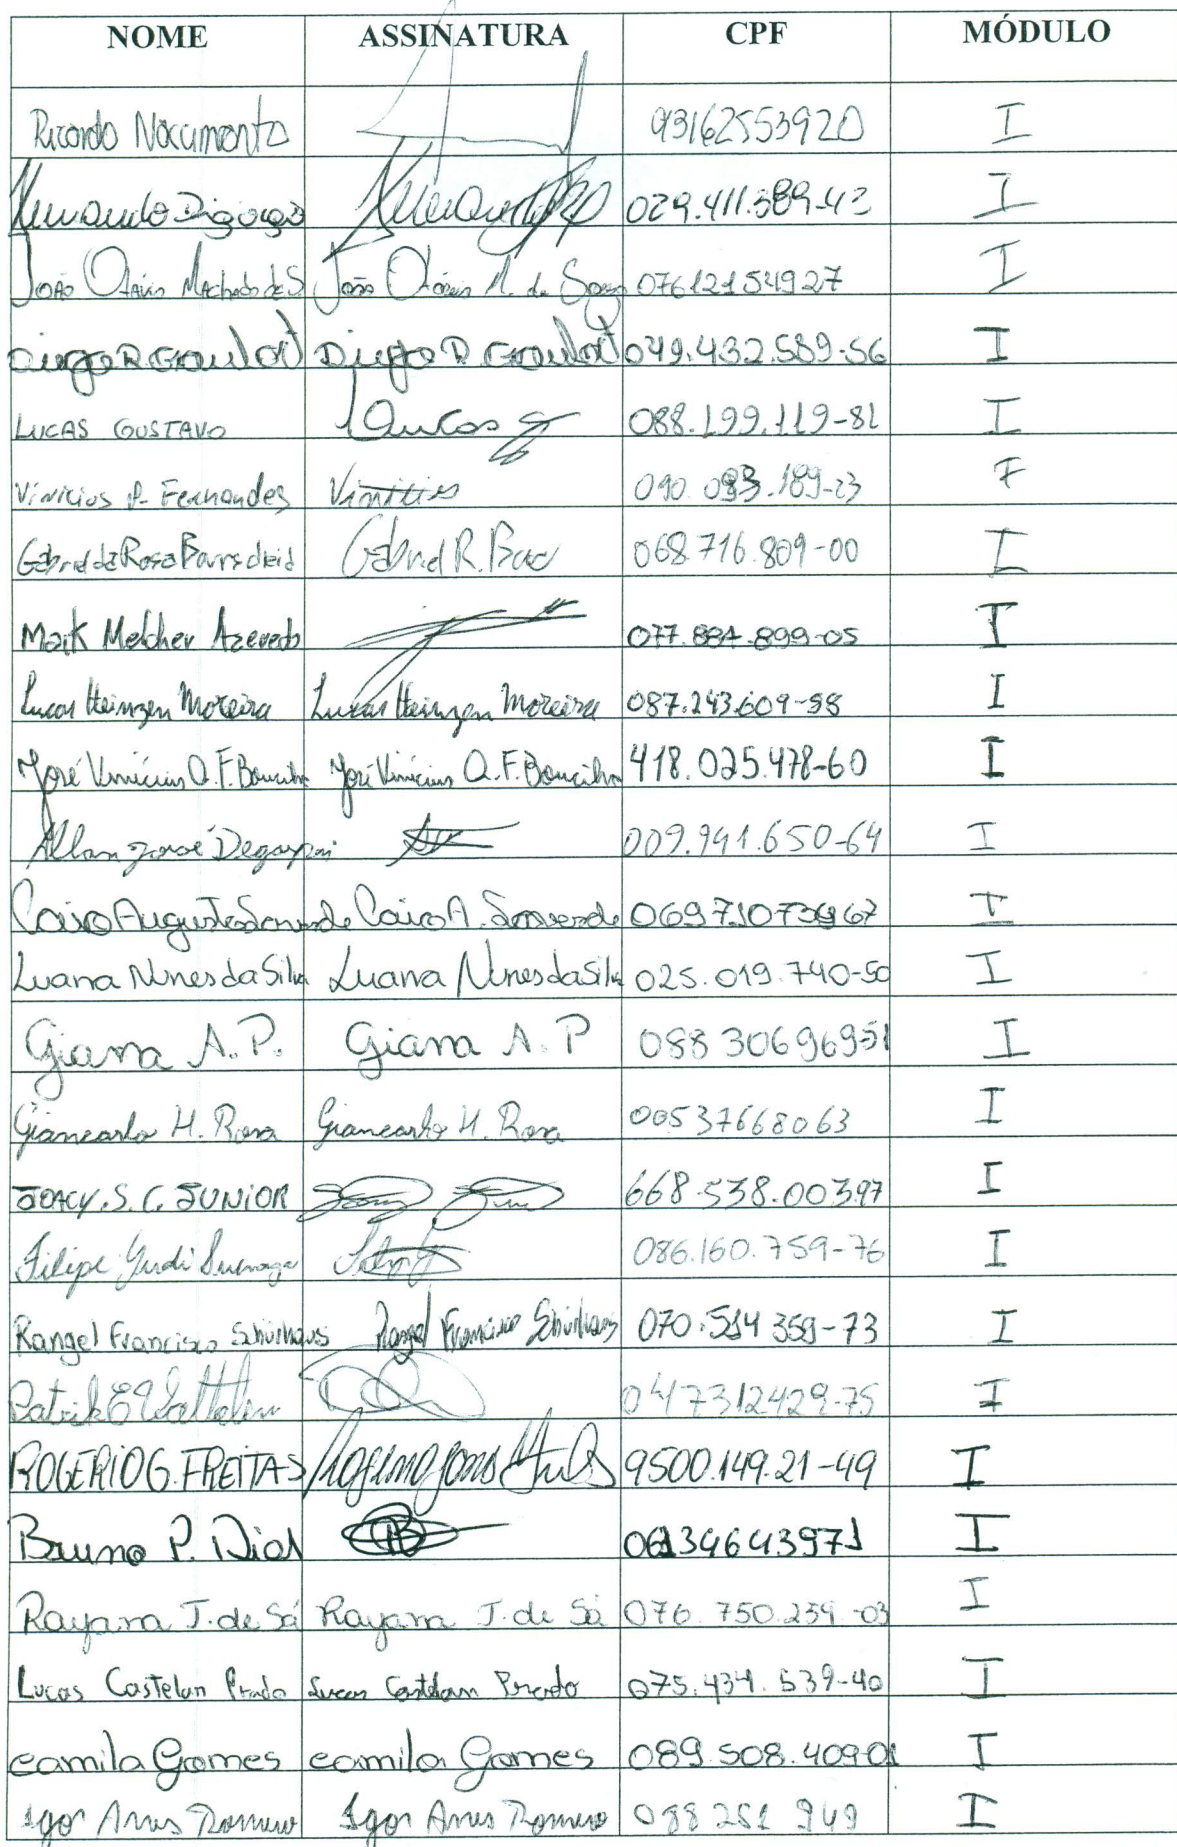 NOME ASSINATURA CPF MÓDULO
Ricardo Nascimento 93162553920 I
Digiorgio 029.411.389-43 I
João Otávio Machado de S João Otávio M. de Souza 07612154927 I
Diego R Goulart Diego R Goulart 049.432.589-56 I
LUCAS GUSTAVO Lucas G 088.199.119-81 I
Vinicius P. Fernandes Vinicius 090.083.189-23 I
Gabriel da Rosa Gabriel R. 068.716.809-00 I
Mark Melcher Azevedo 077.884.899-05 I
Lucas Heinzen Moreira Lucas Heinzen Moreira 087.243.609-58 I
José Vinícius Q. F. José Vinícius Q. F. 418.025.478-60 I
Allan José 009.941.650-64 I
Cairo Augusto Cairo A. I
Luana Nunes da Silva Luana Nunes da Silva 025.019.740-50 I
Giana A. P. Giana A. P 088 306969 51 I
Giancarlo H. Rosa Giancarlo H. Rosa 00537668063 I
JOACY. S. C. JUNIOR 668.538.003.97 I
Filipe Yudi Suenaga 086.160.759-76 I
Rangel Francisco Schürhaus Rangel Francisco Schürhaus 070.514 359-73 I
Patrik 047312429-75 I
ROGÉRIO G. FREITAS 9500.149.21-49 I
Bruno P. Dias 06134643971 I
Rayana J. de Sá Rayana J. de Sá 076.750.259.-03 I
Lucas Castelan Prado Lucas Castelan Prado 075.434.539-40 I
Camila Gomes Camila Gomes 089.508.409-01 I
Igor Romero Igor Romero 088 251 949 I